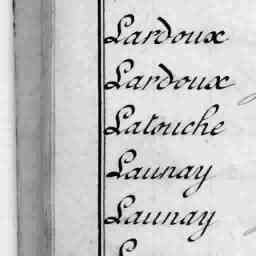 Lardoux
Lardoux
Latouche
Launay
Launay